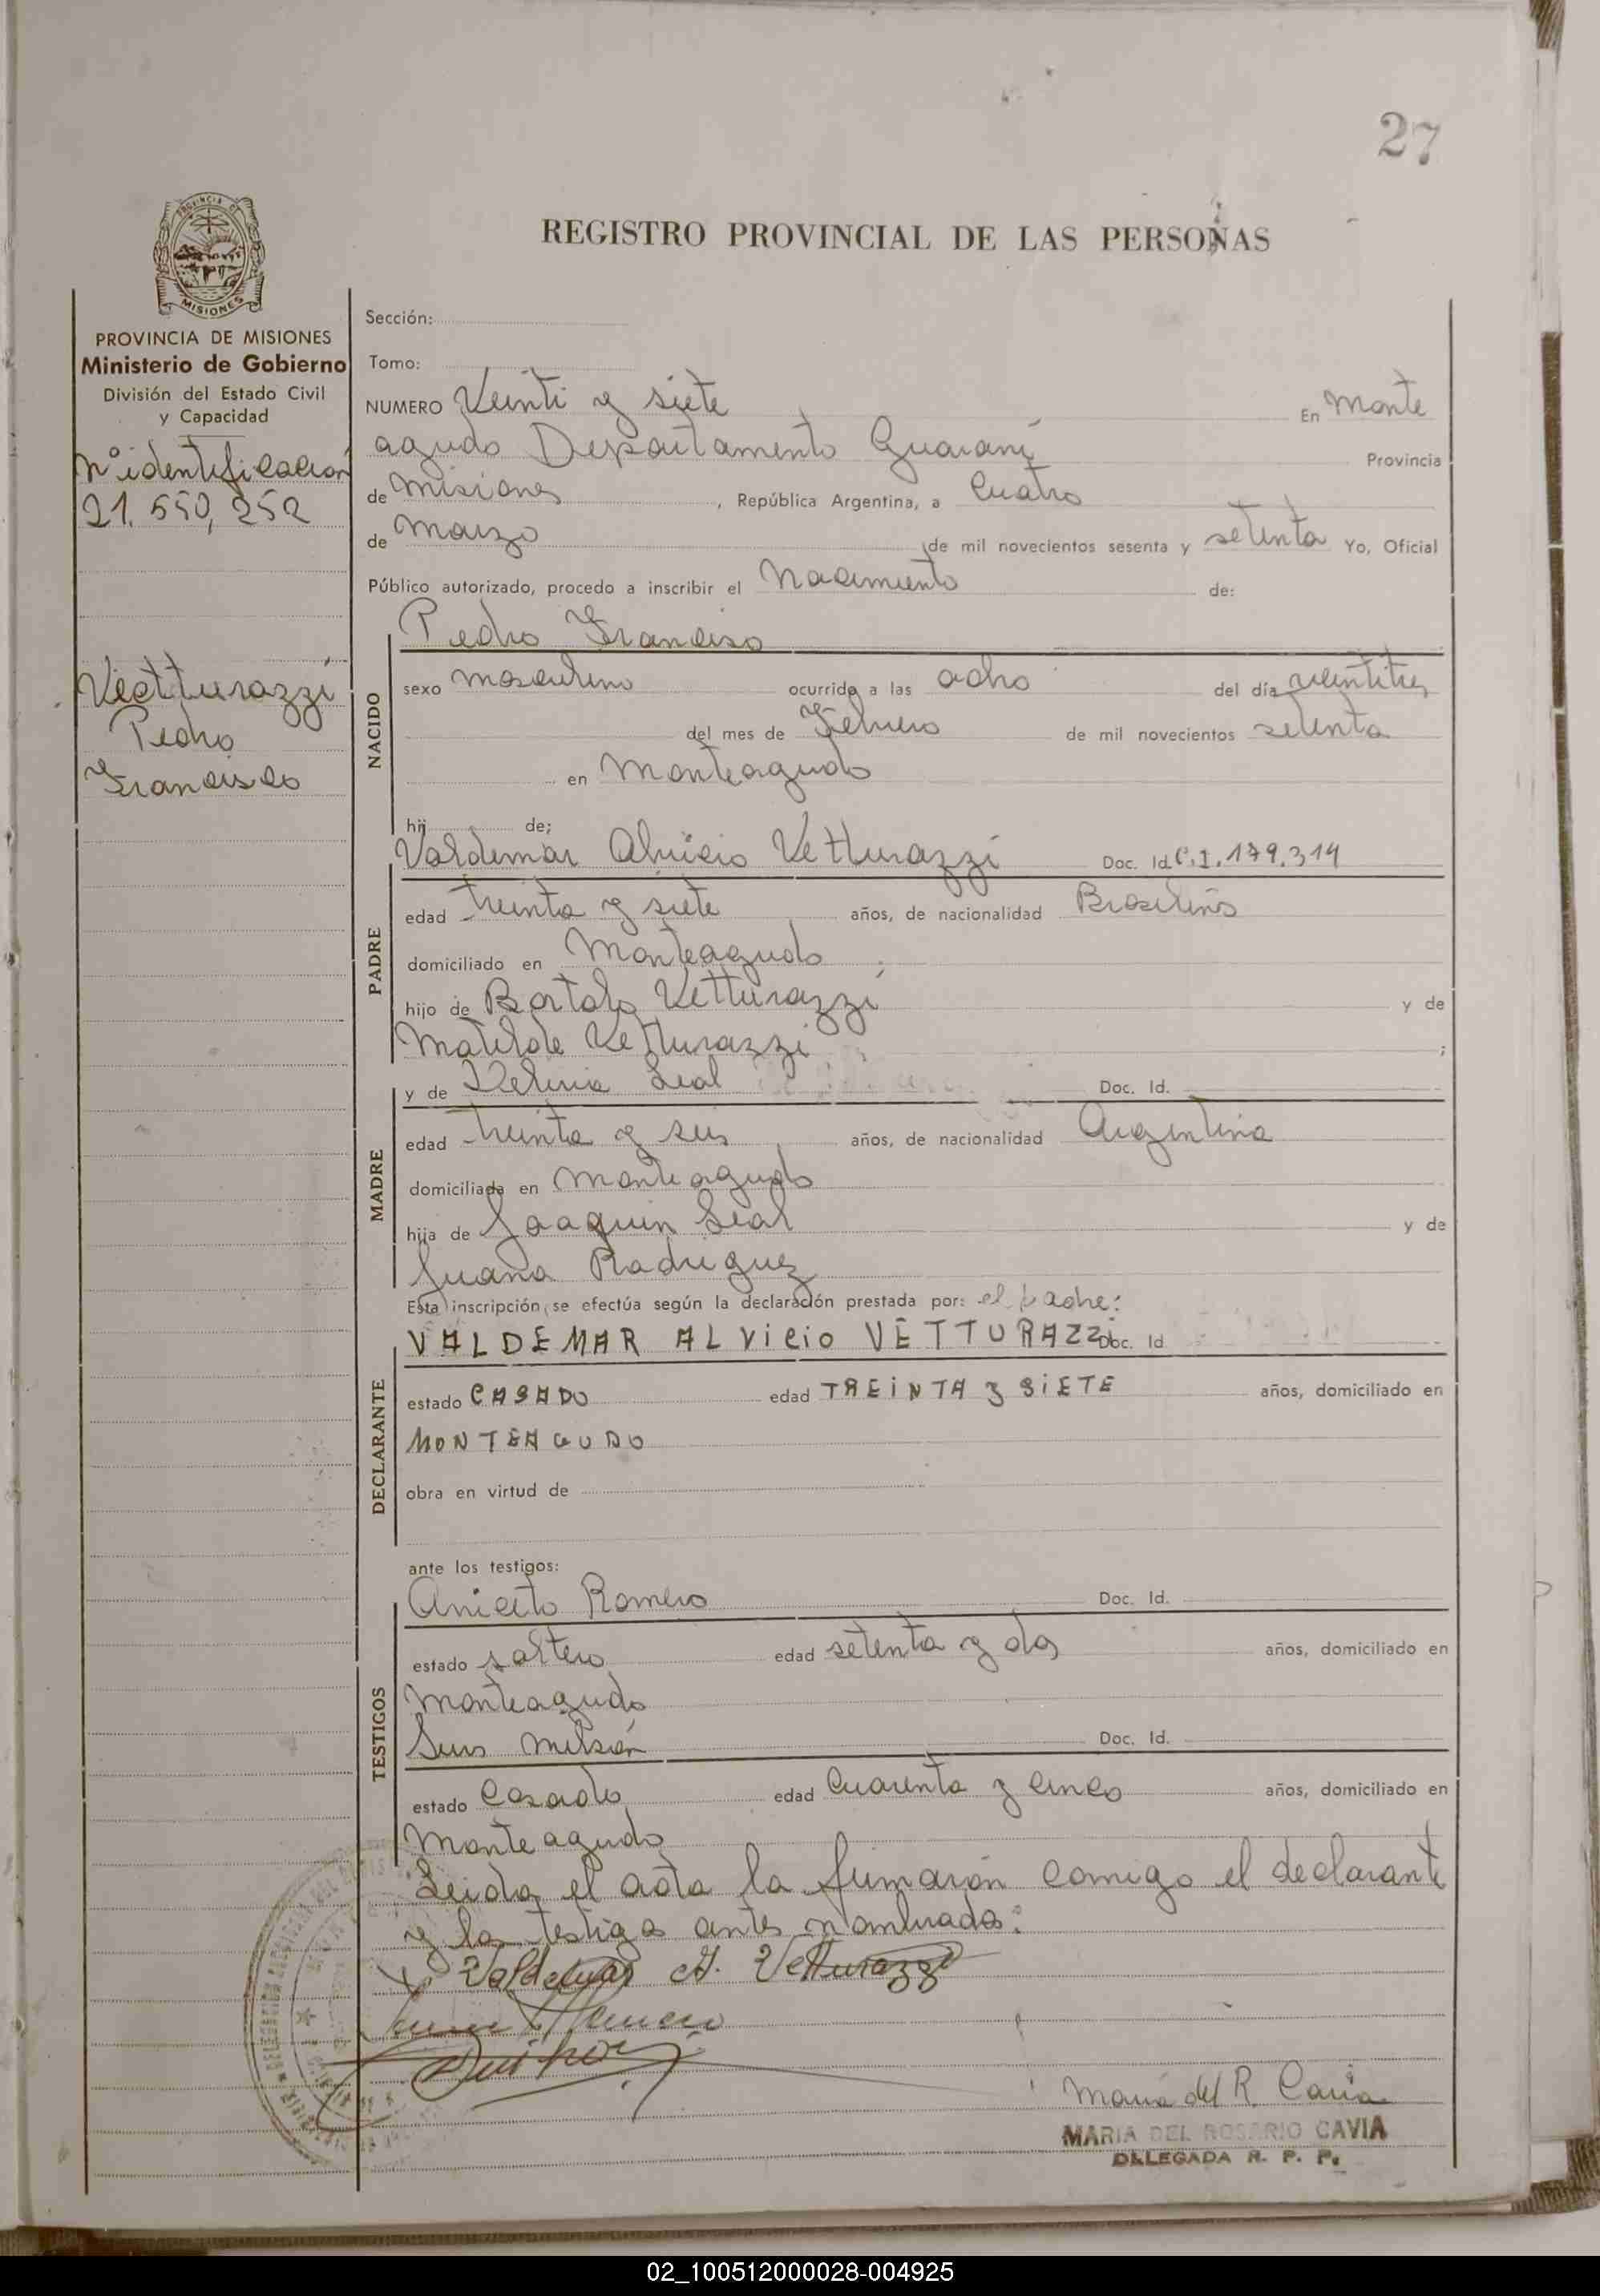 27
REGISTRO PROVINCIAL DE LAS PERSONAS
PROVINCIA DE
MISIONES
PROVINCIA DE MISIONES
Ministerio de Gobierno
División del Estado Civil
y Capacidad
Nº identificacion
21.550,252
Vettturazzi
Pedro
Francisco
Sección:
Tomo:
NUMERO Veinti y siete En Monte
agudo Departamento Guaraní Provincia
de Misiones, República Argentina, a Cuatro
de Marzo de mil novecientos sesenta y setenta Yo, Oficial
Público autorizado, procedo a inscribir el Nacimiento de:
NACIDO
Pedro Francisco
sexo masculino ocurrido a las ocho del día veintitres
del mes de Febrero de mil novecientos setenta
en Monteagudo
hij de;
PADRE
Valdemar Alvicio Vetturazzi Doc. Id. C.I. 179.314
edad treinta y siete años, de nacionalidad Brasileño
domiciliado en Monteagudo ;
hijo de Bortolo Vetturazzi y de
Matilde Vetturazzi ;
MADRE
y de Leal Doc. Id.
edad treinta y seis años, de nacionalidad Argentina
domiciliada en Monteagudo
hija de Joaquin Leal y de
Juana Rodriguez
Esta inscripción se efectúa según la declaración prestada por: el padre:
DECLARANTE
VALDEMAR ALVicio VETTURAZZi Doc. Id.
estado CASADO edad TREiNTA y SiETE años, domiciliado en
MONTEAGUDO
obra en virtud de
ante los testigos:
TESTIGOS
Aniceto Romero Doc. Id.
estado soltero edad setenta y dos años, domiciliado en
Monteagudo
Luis Doc. Id.
estado Casado edad Cuarenta y cinco años, domiciliado en
Monteagudo
Leida el acta la firmarón comigo el declarante
y los testigos antes nombrados:
Valdemar A. Vetturazzi
Maria del R. Cavia
MARIA DEL ROSARIO CAVIA
DELEGADA R. P. P.
02_100512000028-004925